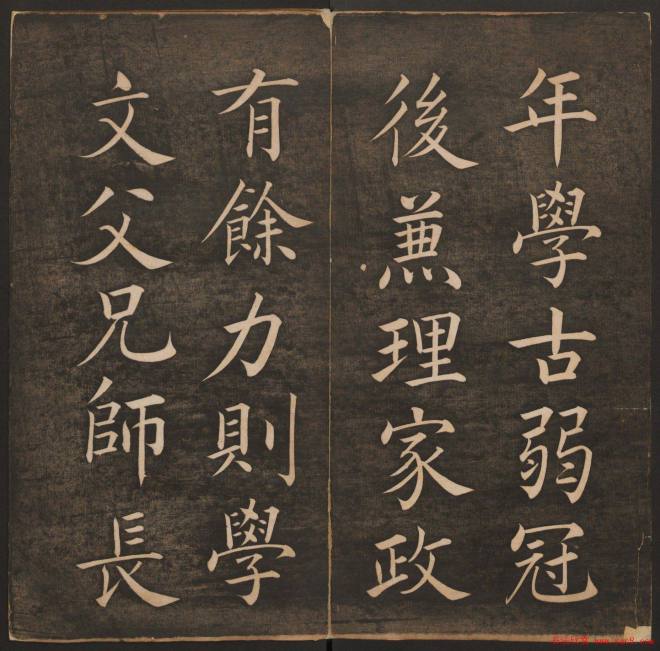 年學古弱冠
後兼理家政
有餘力則學
文父兄師長